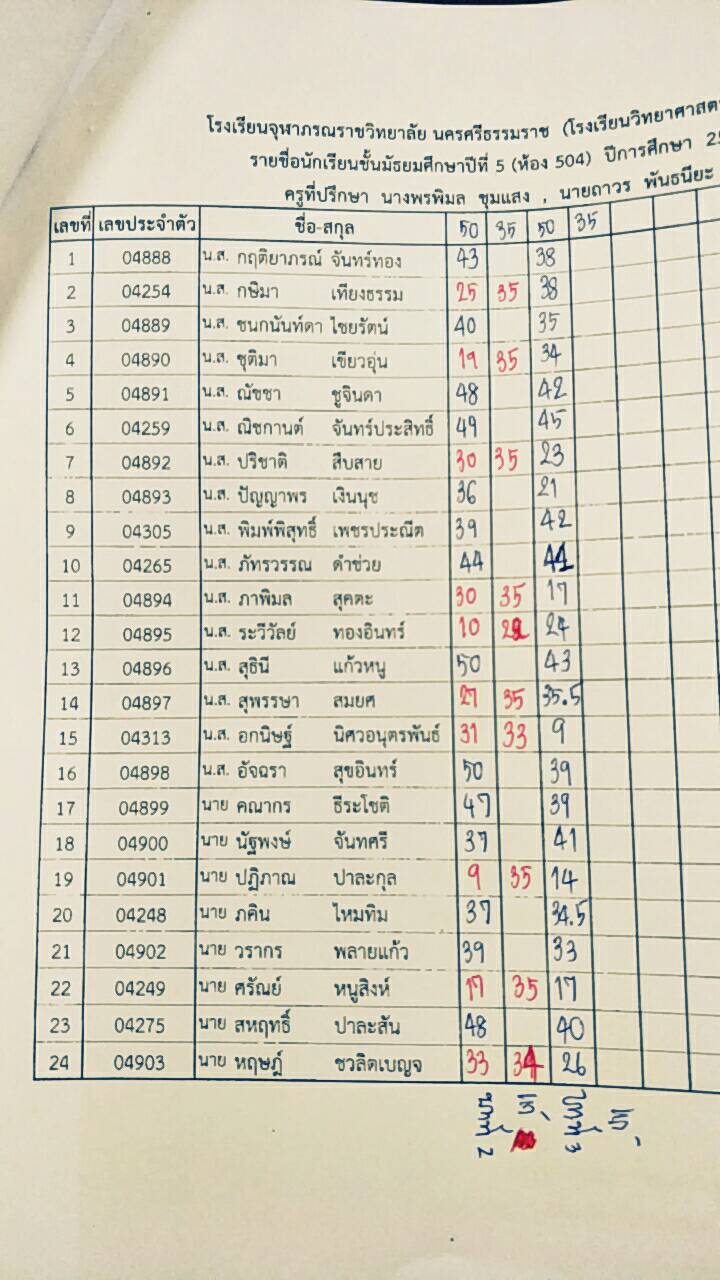 โรงเรียนจุฬาภรณราชวิทยาลัย นครศรีธรรมราช (โรงเรียนวิทยาศาสตร
รายชื่อนักเรียนชั้นมัธยมศึกษาปีที่ 5 (ห้อง 504) ปีการศึกษา 25
ครูที่ปรึกษา นางพรพิมล ชุมแสง , นายถาวร พันธนียะ
เลขที่ เลขประจำตัว ชื่อ-สกุล 50 35 50 35
1 04888 น.ส. กฤติยาภรณ์ จันทร์ทอง 43 38
2 04254 น.ส. กษิมา เทียงธรรม 25 35 38
3 04889 น.ส. ชนกนันท์ดา ไชยรัตน์ 40 35
4 04890 น.ส. ชุติมา เขียวอุ่น 19 35 34
5 04891 น.ส. ณัชชา ชูจินดา 48 42
6 04259 น.ส. ณิชกานต์ จันทร์ประสิทธิ์ 49 45
7 04892 น.ส. ปริชาติ สืบสาย 30 35 23
8 04893 น.ส. ปัญญาพร เงินนุช 36 21
9 04305 น.ส. พิมพ์พิสุทธิ์ เพชรประณีต 39 42
10 04265 น.ส. ภัทรวรรณ ดำช่วย 44 41
11 04894 น.ส. ภาพิมล สุคตะ 30 35 17
12 04895 น.ส. ระวีวัลย์ ทองอินทร์ 10 24
13 04896 น.ส. สุธินี แก้วหนู 50 43
14 04897 น.ส. สุพรรษา สมยศ 27 35 35.5
15 04313 น.ส. อกนิษฐ์ นิศวอนุตรพันธ์ 31 33 9
16 04898 น.ส. อัจฉรา สุขอินทร์ 50 39
17 04899 นาย คณากร ธีระโชติ 47 39
18 04900 นาย นัฐพงษ์ จันทศรี 37 41
19 04901 นาย ปฏิภาณ ปาละกุล 9 35 14
20 04248 นาย ภคิน ไหมทิม 37 34.5
21 04902 นาย วรากร พลายแก้ว 39 33
22 04249 นาย ศรัณย์ หนูสิงห์ 17 35 17
23 04275 นาย สหฤทธิ์ ปาละสัน 48 40
24 04903 นาย หฤษฎ์ ชวลิตเบญจ 33 34 26
บทที่ 2 แก้ บทที่ 3 แก้